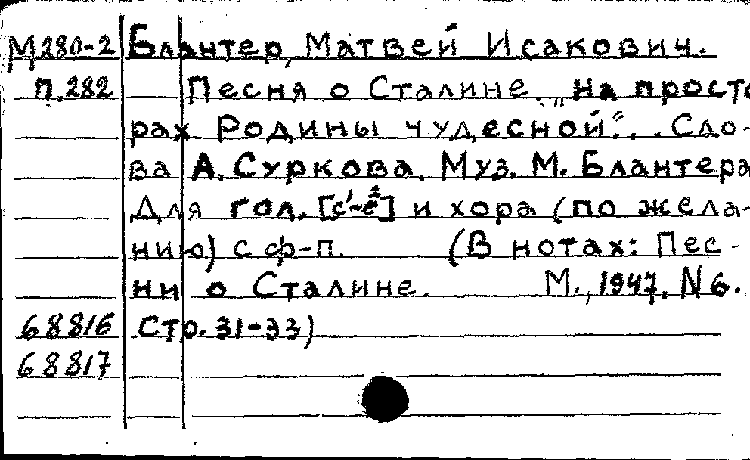 М280-2 Блантер, Матвей Исакович.
П.282 Песня о Сталине. „На просто
рах Родины чудесной"... Сло-
ва А. Суркова. Муз. М. Блантера
Для гол. [c¹-ê²] и хора (по жела-
нию) с ф-п. (В нотах: Пес-
ни о Сталине. М., 1947. N 6.
68816 Стр. 31-33)
68817